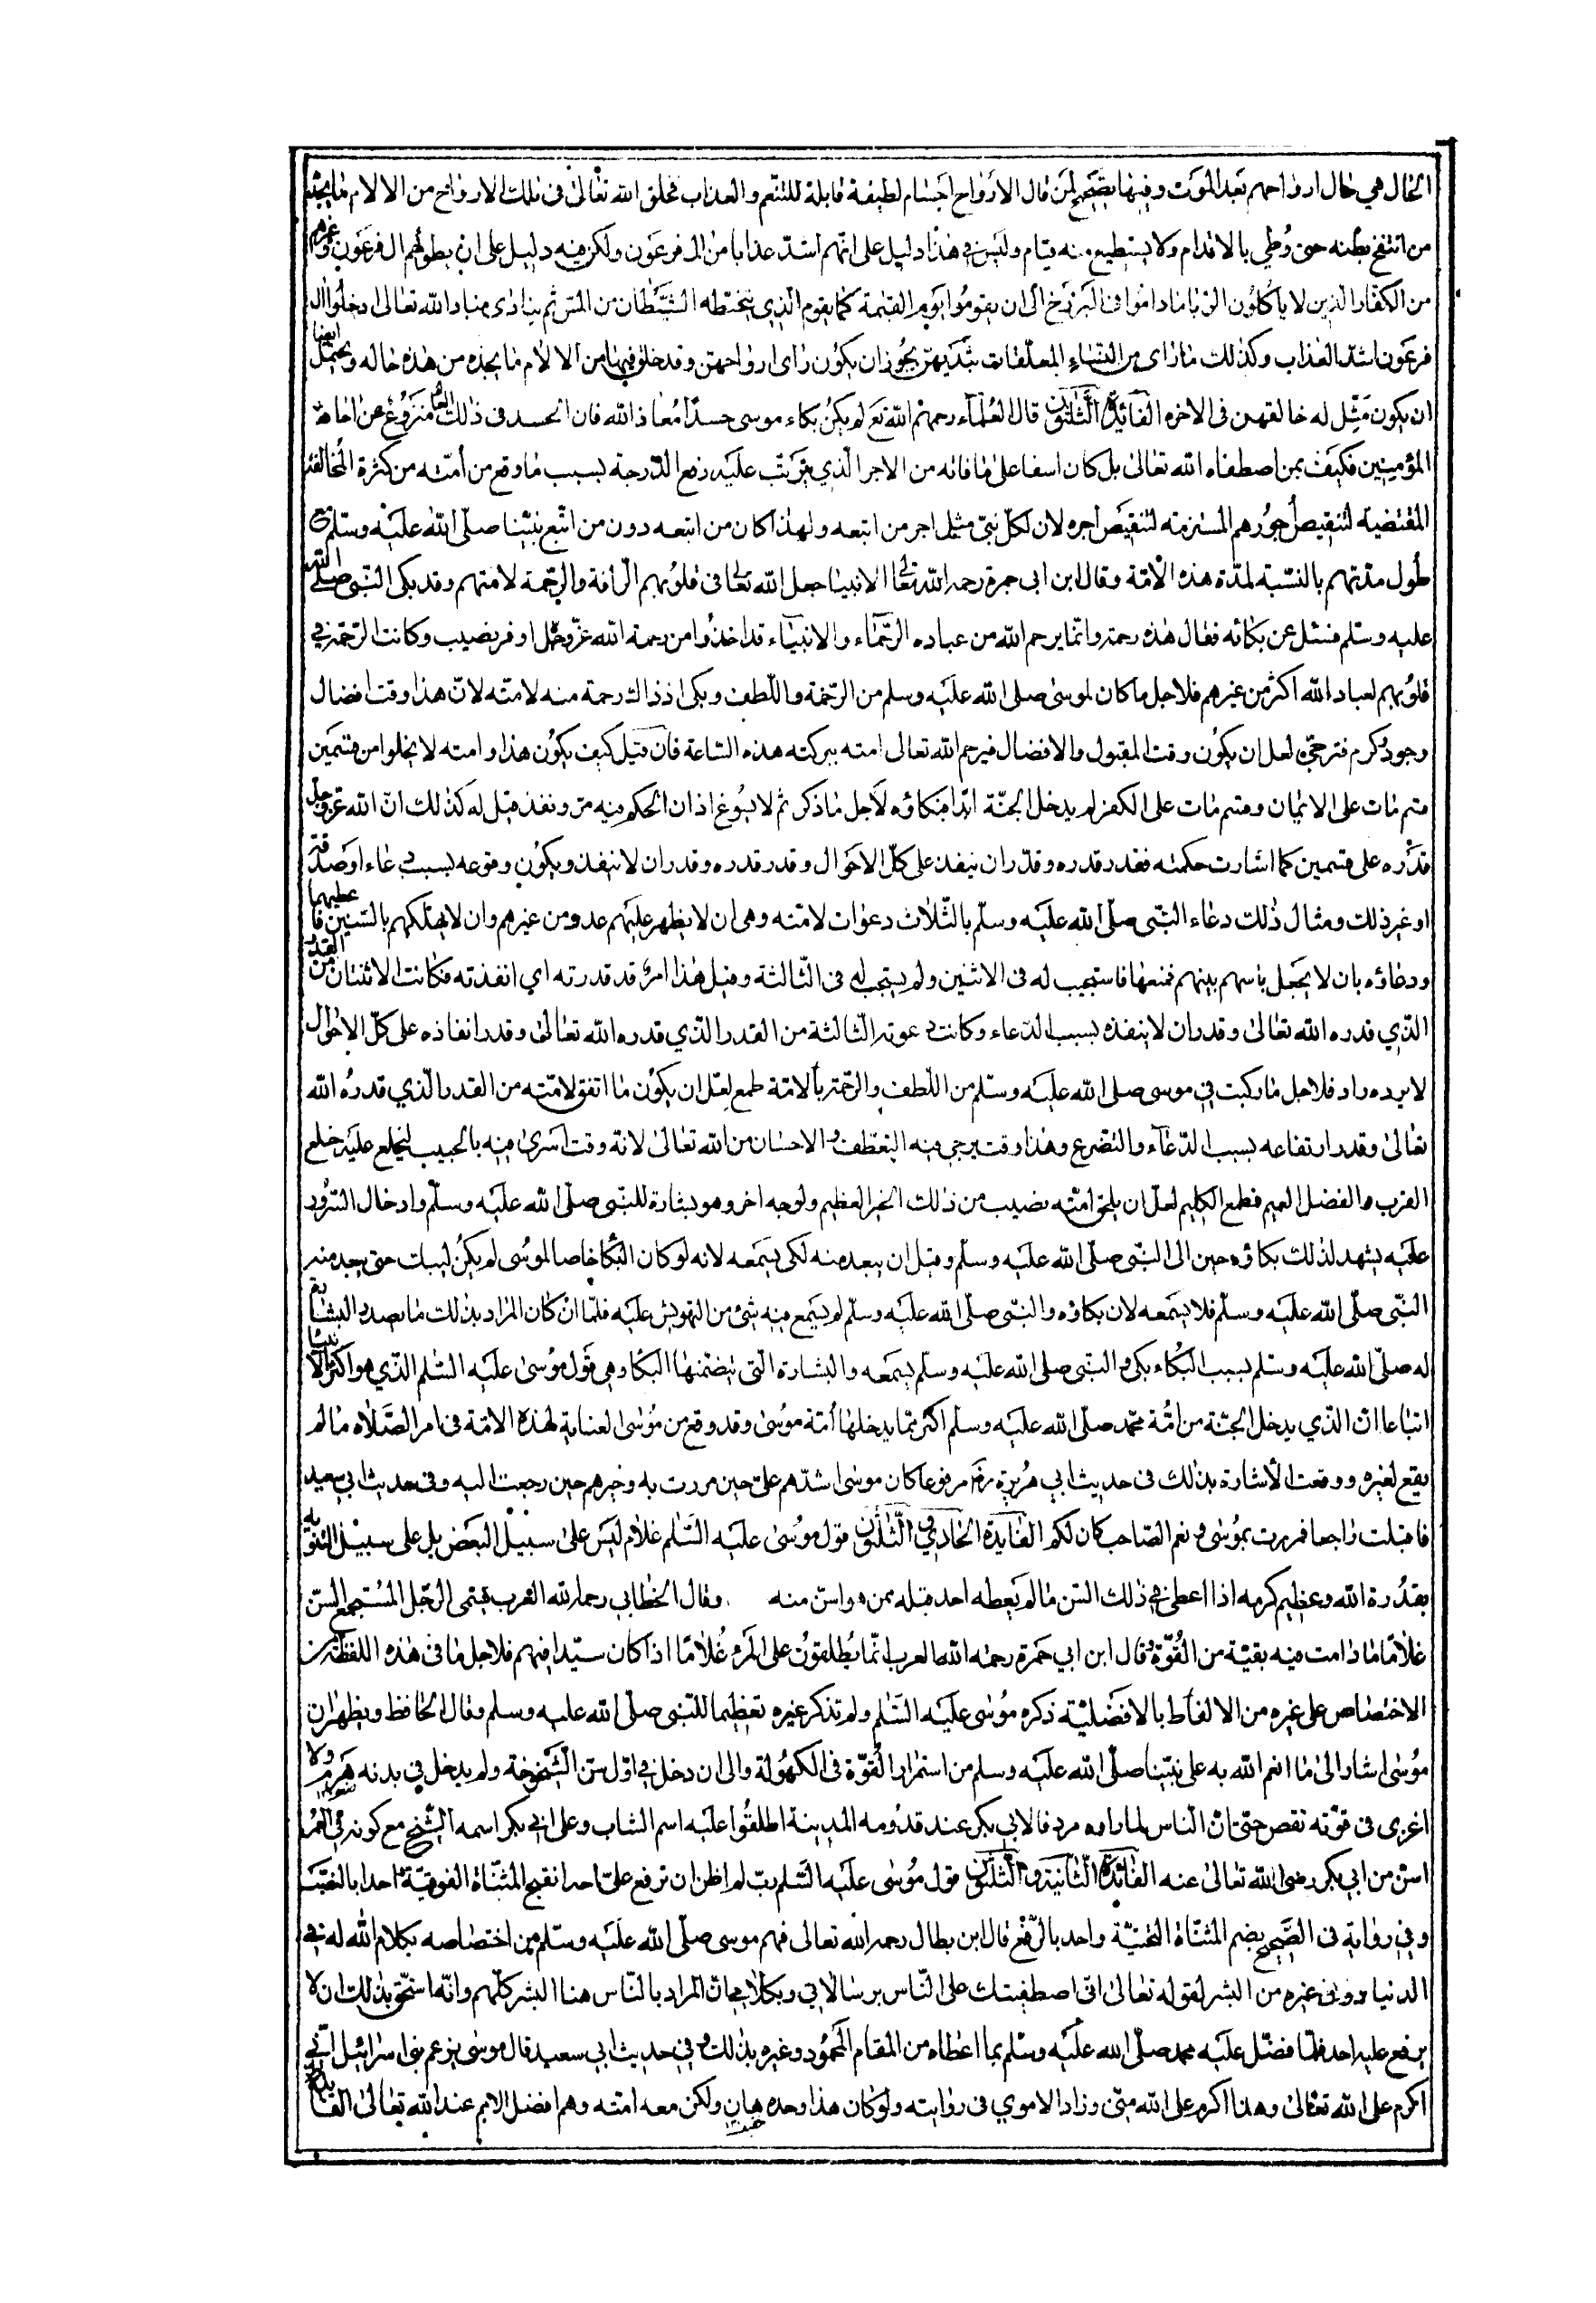 الحال هي حال ارواحهم بعد الموت وفيها تصحيح لمن قال الارواح اجسام لطيفة قابلة للتنعم والعذاب فخلق الله تعالى في تلك الارواح من الالام ما يجده
من انتفخ بطنه حتى وُطي بالاقدام ولا يستطيع منه قيام وليس في هذا دليل على انهم اشد عذابا من ال فرعون ولكن فيه دليل على ان يطؤهم ال فرعون وغيرهم
من الكفار الذين لا ياكلون الربا ماداموا في البرزخ الى ان يقوموا يوم القيمة كما يقوم الذي يتخبطه الشيطان من المس ثم ينادى مناد الله تعالى ادخلوا ال
فرعون اشد العذاب وكذلك ما راى من النساء المعلقات بثديهن يجوز ان يكون راى ارواحهن وقد خلق فيها من الالام ما يجده من هذه حاله ويحتمل ايضا
ان يكون مَثّل له خالقهن في الاخره الفائدة الثلثون قال العلماء رحمهم الله تع لم يكن بكاء موسى حسدًا مُعاذ الله فان الحسد في ذلك العالم منزوع عن احاد
المؤمنين فكيف بمن اصطفاه الله تعالى بل كان اسفا على ما فاته من الاجر الذي يترتب عليه رفع الدرجة بسبب ما وقع من أمته من كثرة المخالفة
المقتضية لتنقيص أجورهم المستلزمة لتنقيص اجره لان لكل نبى مثل اجر من اتبعه ولهذا كان من اتبعه دون من اتبع نبينا صلى الله عليه وسلم مع
طول مدتهم بالنسبة لمدة هذه الأمة وقال ابن ابى جمرة رحمه الله تعالى الانبيا جعل الله تعالى في قلوبهم الرافة والرحمة لامتهم وقد بكى النبى صلى الله
عليه وسلم فسئل عن بكائه فقال هذه رحمة وانما يرحم الله من عباده الرحماء والانبياء قد اخذوا من رحمة الله عز وجل اوفر نصيب وكانت الرحمة في
قلوبهم لعباد الله اكثر من غيرهم فلاجل ما كان لموسى صلى الله عليه وسلم من الرحمة واللطف وبكى اذ ذاك رحمة منه لامته لان هذا وقت افضال
وجود وكرم فترجى لعل ان يكون وقت القبول والافضال فيرحم الله تعالى امته ببركته هذه الساعة فان قيل كيف يكون هذا وامته لا يخلوا من قسمين
قسم مات على الايمان وقسم مات على الكفر لم يدخل الجنة ابدا فبكاؤه لأجل ما ذكر ثم لا يسوغ اذ ان الحكم فيه مر ونفذ قيل له كذلك ان الله عز وجل
قدّره على قسمين كما اشارت حكمته فقدر قدره وقدّر ان ينفذ على كل الاحوال وقدر قدره وقدر ان لا ينفذ ويكون وقوعه بسبب دعاء او صدقة
او غير ذلك ومثال ذلك دعاء النبى صلى الله عليه وسلم بالثلاث دعوات لامته وهى ان لا يظهر عليهم عدو من غيرهم وان لا يهلكهم بالسنين فاعطيهما
ودعاؤه بان لا يجعل باسهم بينهم فمنعها فاستجيب له في الاثنين ولم يستجب له في الثالثة وقيل هذا امر قد قدرته اي انفذته فكانت الاثنتان من القدر
الذي قدره الله تعالى وقدر ان لا ينفذه بسبب الدعاء وكانت دعوته الثالثة من القدر الذي قدره الله تعالى وقدر انفاذه على كل الاحوال
لا يرده راد فلاجل ما ركبت في موسى صلى الله عليه وسلم من اللطف والرحمة بالامة طمع لعل ان يكون ما اتفق لامته من القدر الذي قدره الله
تعالى وقدر ارتفاعه بسبب الدعاء والتضرع وهذا وقت يرجى فيه التعطف والاحسان من الله تعالى لانه وقت أسرى فيه بالحبيب ليخلع عليه خلع
القرب والفضل العميم فطمع الكليم لعل ان يلحق امته نصيب من ذلك الخير العظيم ولوجه اخر وهو بشارة للنبى صلى الله عليه وسلم وادخال السرور
عليه يشهد لذلك بكاؤه حين الى النبى صلى الله عليه وسلم وقبل ان يبعد منه لكى يسمعه لانه لو كان البكا خاصا لموسى لم يكن ليبك حتى يبعد منه
النبى صلى الله عليه وسلم فلا يسمعه لان بكاؤه والنبى صلى الله عليه وسلم يسمع فيه شئ من التهويش عليه فلما ان كان المراد بذلك ما يصدر البشارة
له صلى الله عليه وسلم بسبب البكاء بكى و النبى صلى الله عليه وسلم يسمعه والبشارة التى يتضمنها البكا وهي قول موسى عليه السلم الذي هو اكثر الانبيا
اتباعا ان الذي يدخل الجنة من امة محمد صلى الله عليه وسلم اكثر مما يدخلها أمة موسى وقد وقع من موسى العناية لهذه الامة في امر الصلاه ما لم
يقع لغيره ووقعت الأشارة بذلك في حديث ابي هريرة رضي مرفوعا كان موسى اشدهم على حين مررت به وخيرهم حين رجعت اليه وفى حديث ابي سعيد
فاقبلت راجعا فمررت بموسى ونعم الصاحب كان لكم الفايدة الحادي و الثلثون قول موسى عليه السلم غلام ليس على سبيل البعض بل على سبيل التنويه
بقدرة الله وعظيم كرمه اذا اعطى في ذلك السن ما لم يعطه احد قبله ممن هو اسن منه وقال الخطابي رحمه الله العرب يسمى الرجل المستجمع السن
غلامًا ما دامت فيه بقية من القوة وقال ابن ابي جمرة رحمه الله العرب انما يطلقون على المرء غلامًا اذا كان سيدا فيهم فلاجل ما في هذه اللفظة من
الاختصاص على غيره من الالفاظ بالافضلية ذكره موسى عليه السلم ولم تذكر غيره تعظيما للنبى صلى الله عليه وسلم وقال الحافظ ويظهر ان
موسى اشار الى ما انعم الله به على نبينا صلى الله عليه وسلم من استمرار القوة في الكهولة والى ان دخل في اول سن الشيخوخة ولم يدخل في بدنه هَرَم ولا
اعترى في قوته نقص حتى ان الناس لما راوه مردفا لابي بكر عند قدومه المدينة اطلقوا عليه اسم الشاب وعلى ابي بكر اسمه الشيخ مع كونه في العمر
اسن من ابي بكر رضى الله تعالى عنه الفائدة الثانية و الثلثون قول موسى عليه السلم رب لم اظن ان ترفع علىّ احدا بفتح المثناة الفوقية احدا بالنصب
وفي رواية في الصحيح بضم المثناة التحتية واحد بالرفع قال ابن بطال رحمه الله تعالى فهم موسى صلى الله عليه وسلم من اختصاصه بكلام الله له في
الدنيا دون غيره من البشر لقوله تعالى انى اصطفيتك على الناس برسالاتي وبكلامي ان المراد بالناس هنا البشر كلهم وانه استحق بذلك ان لا
يرفع عليه احد فلما فضل عليه محمد صلى الله عليه وسلم بما اعطاه من المقام المحمود وغيره بذلك وفي حديث ابي سعيد قال موسى يزعم بنو اسرائيل اني
اكرم على الله تعالى وهذا اكرم على الله منى وزاد الاموي في روايته ولو كان هذا وحده هان ولكن معه امته وهم افضل الامم عند الله تعالى الفايدة